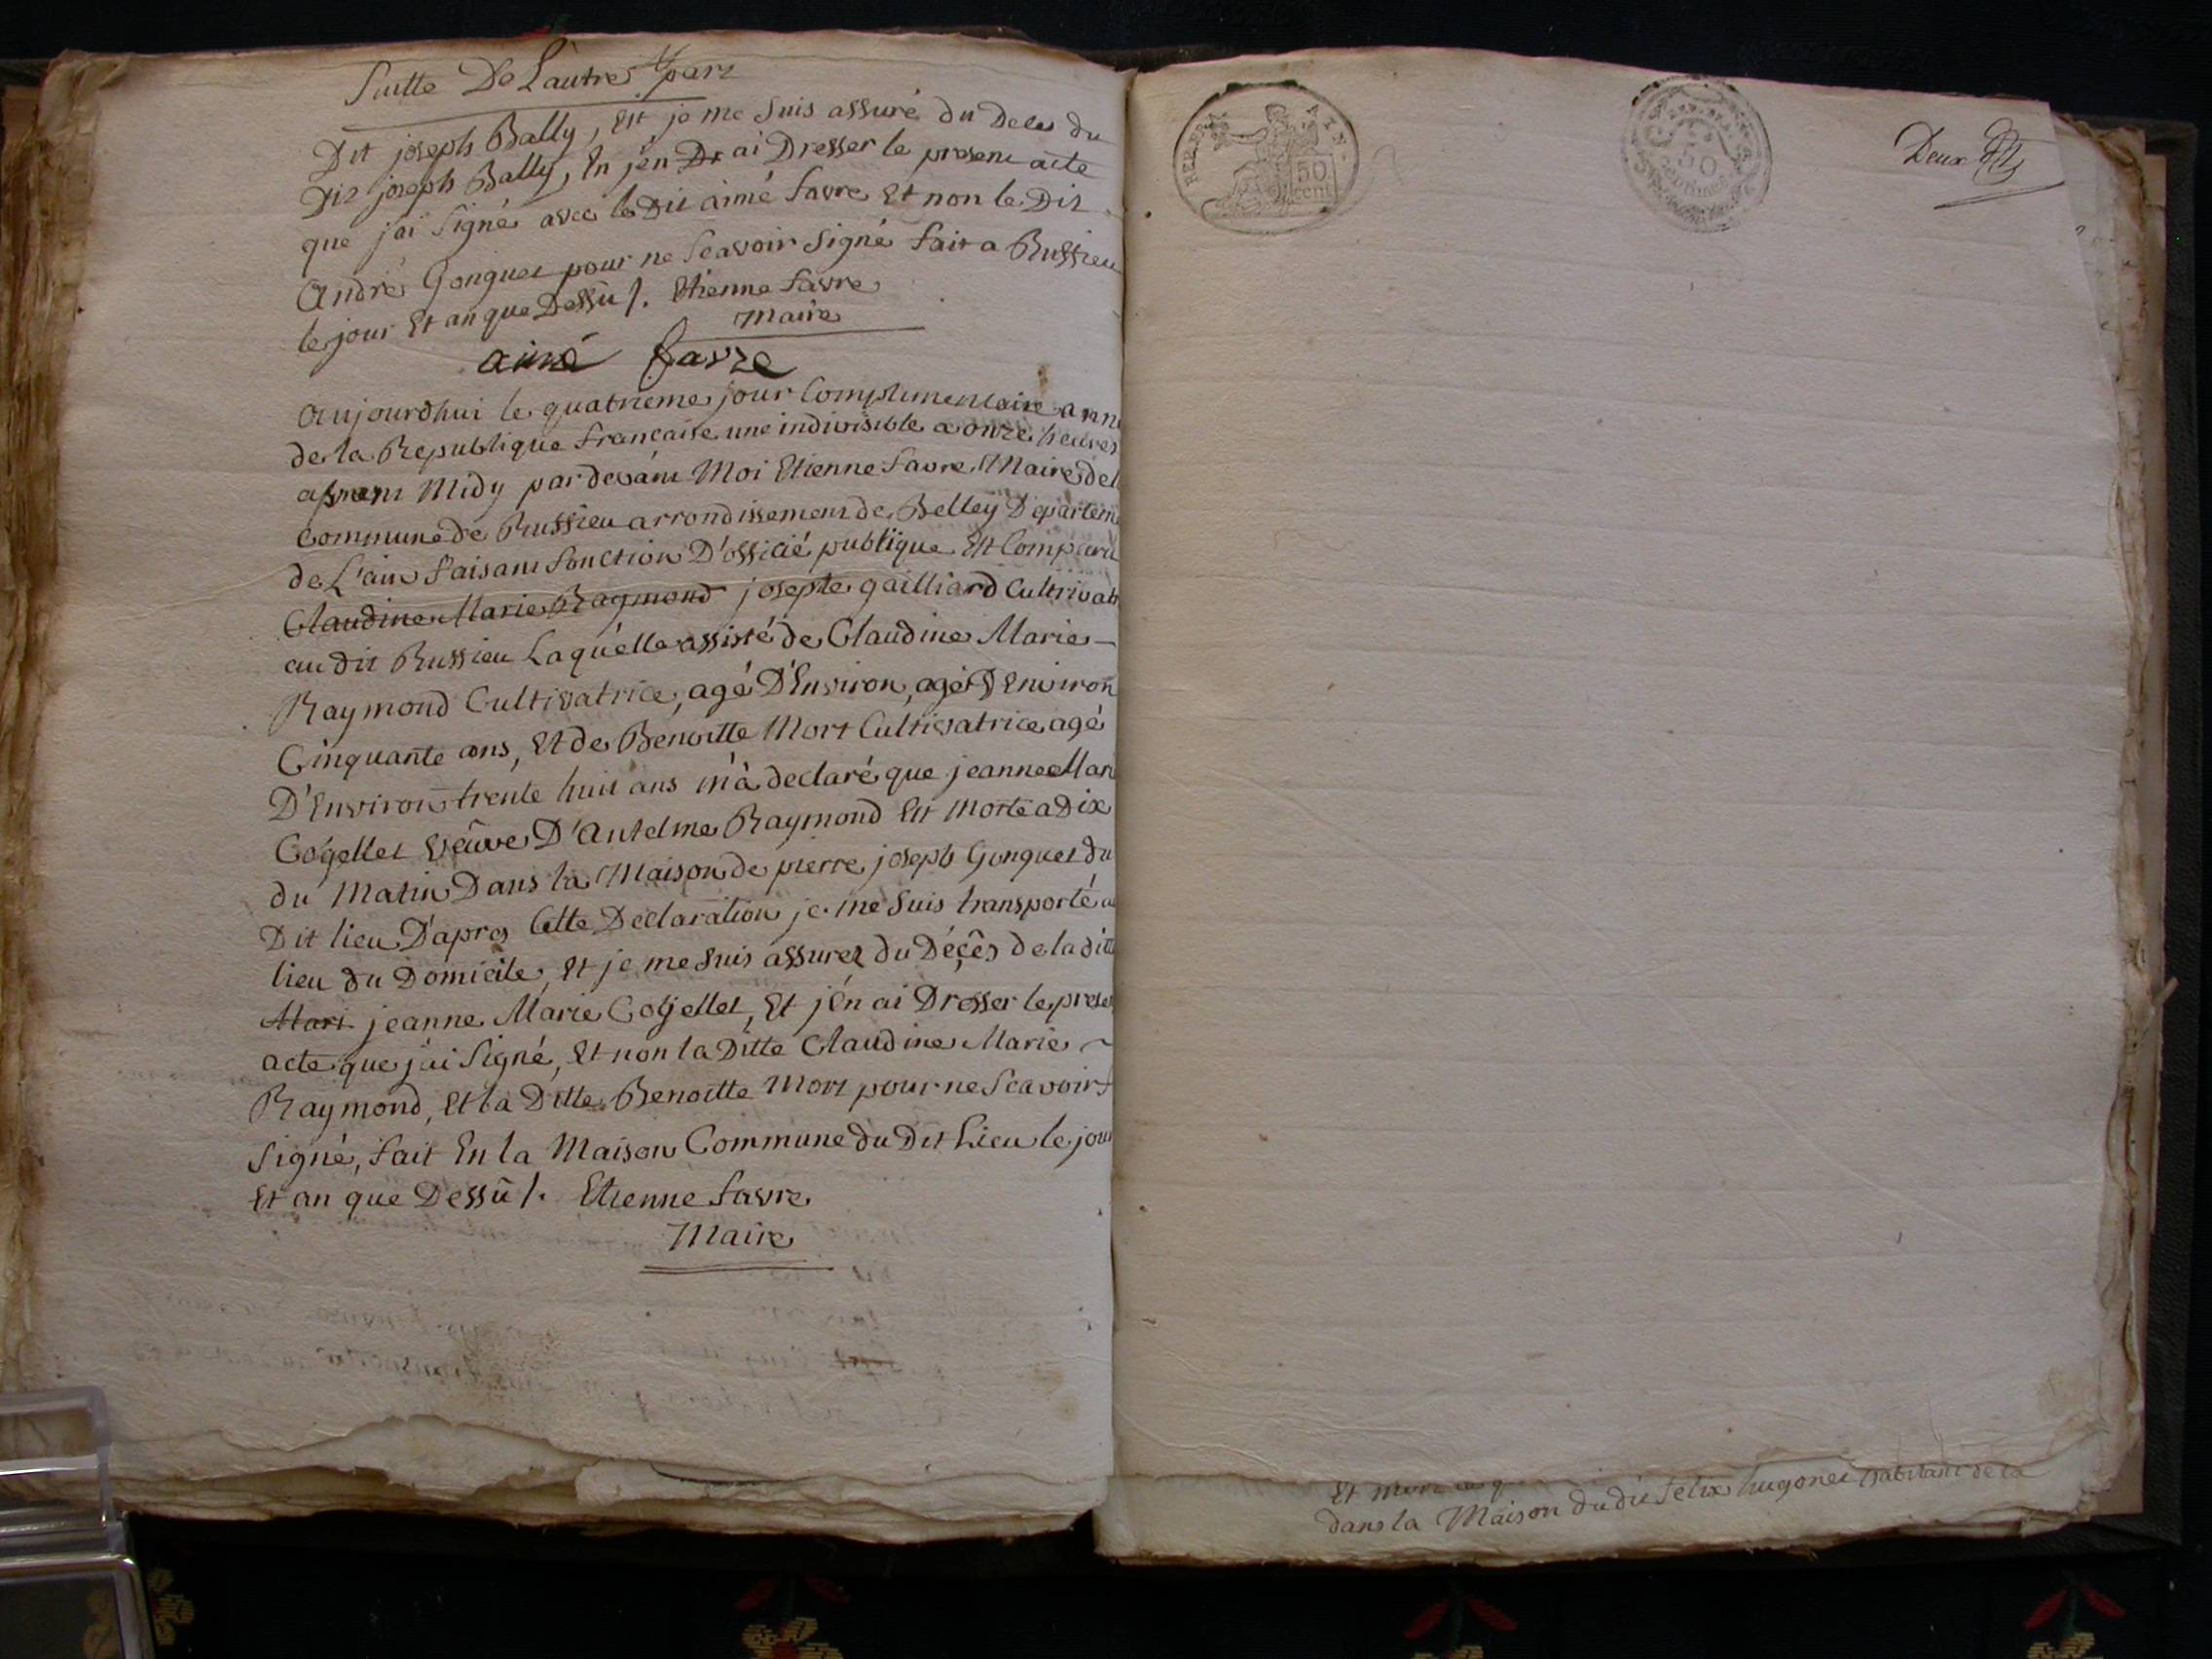 Suitte De Lautre part
Dit joseph Bally, Et je me suis assuré du Deces du
Dit joseph Bally, En j'en Dr ai Dresser le present acte
que j'ai Signé avec le Dit aimé favre Et non le Dit
André Gonguet pour ne Scavoir Signé fait a Russieu
le jour Et an que Dessû /. Etienne favre
Maire
aimé favre
aujourdhui le quatrieme jour Complimentaire anne
de la Republique francaise une indivisible a onze heures
avant Midy par devant Moi Etienne favre Maire de l
Commune de Russieu arrondissement de Belley Departeme
de L'ain faisant fonction D'officié publique Est Comparu
Claudine Marie Raymond josepte gailliard Cultivatr
au dit Russieu Laquelle assisté de Claudine Marie -
Raymond Cultivatrice, agé D'Environ, agé D'Environ
Cinquante ans, Et de Benoitte Mort Cultivatrice agé
D'Environ trente huit ans m'à declaré que jeanne Mari
Cogellet veûve D'Antelme Raymond Est Morte a Dix
du Matin Dans la Maison de pierre joseph Gonguet du
Dit lieu D'apres Cette Declaration je me Suis transporté a
lieu du Domicile, Et je me suis assurez du Déçês de la ditt
Mari jeanne Marie Cogellet, Et j'en ai Dresser le prese
acte que j'ai Signé, Et non la Ditte Claudine Marie ~
Raymond, Et la Ditte Benoitte Mort pour ne Scavoir
Signé, fait En la Maison Commune du Dit Lieu le jour
Et an que Dessû /. Etienne favre
Maire
REP. FRA
AIN.
50
cent
50
Deux
Et mort
dans la Maison du dit felix hugonet habitant de la